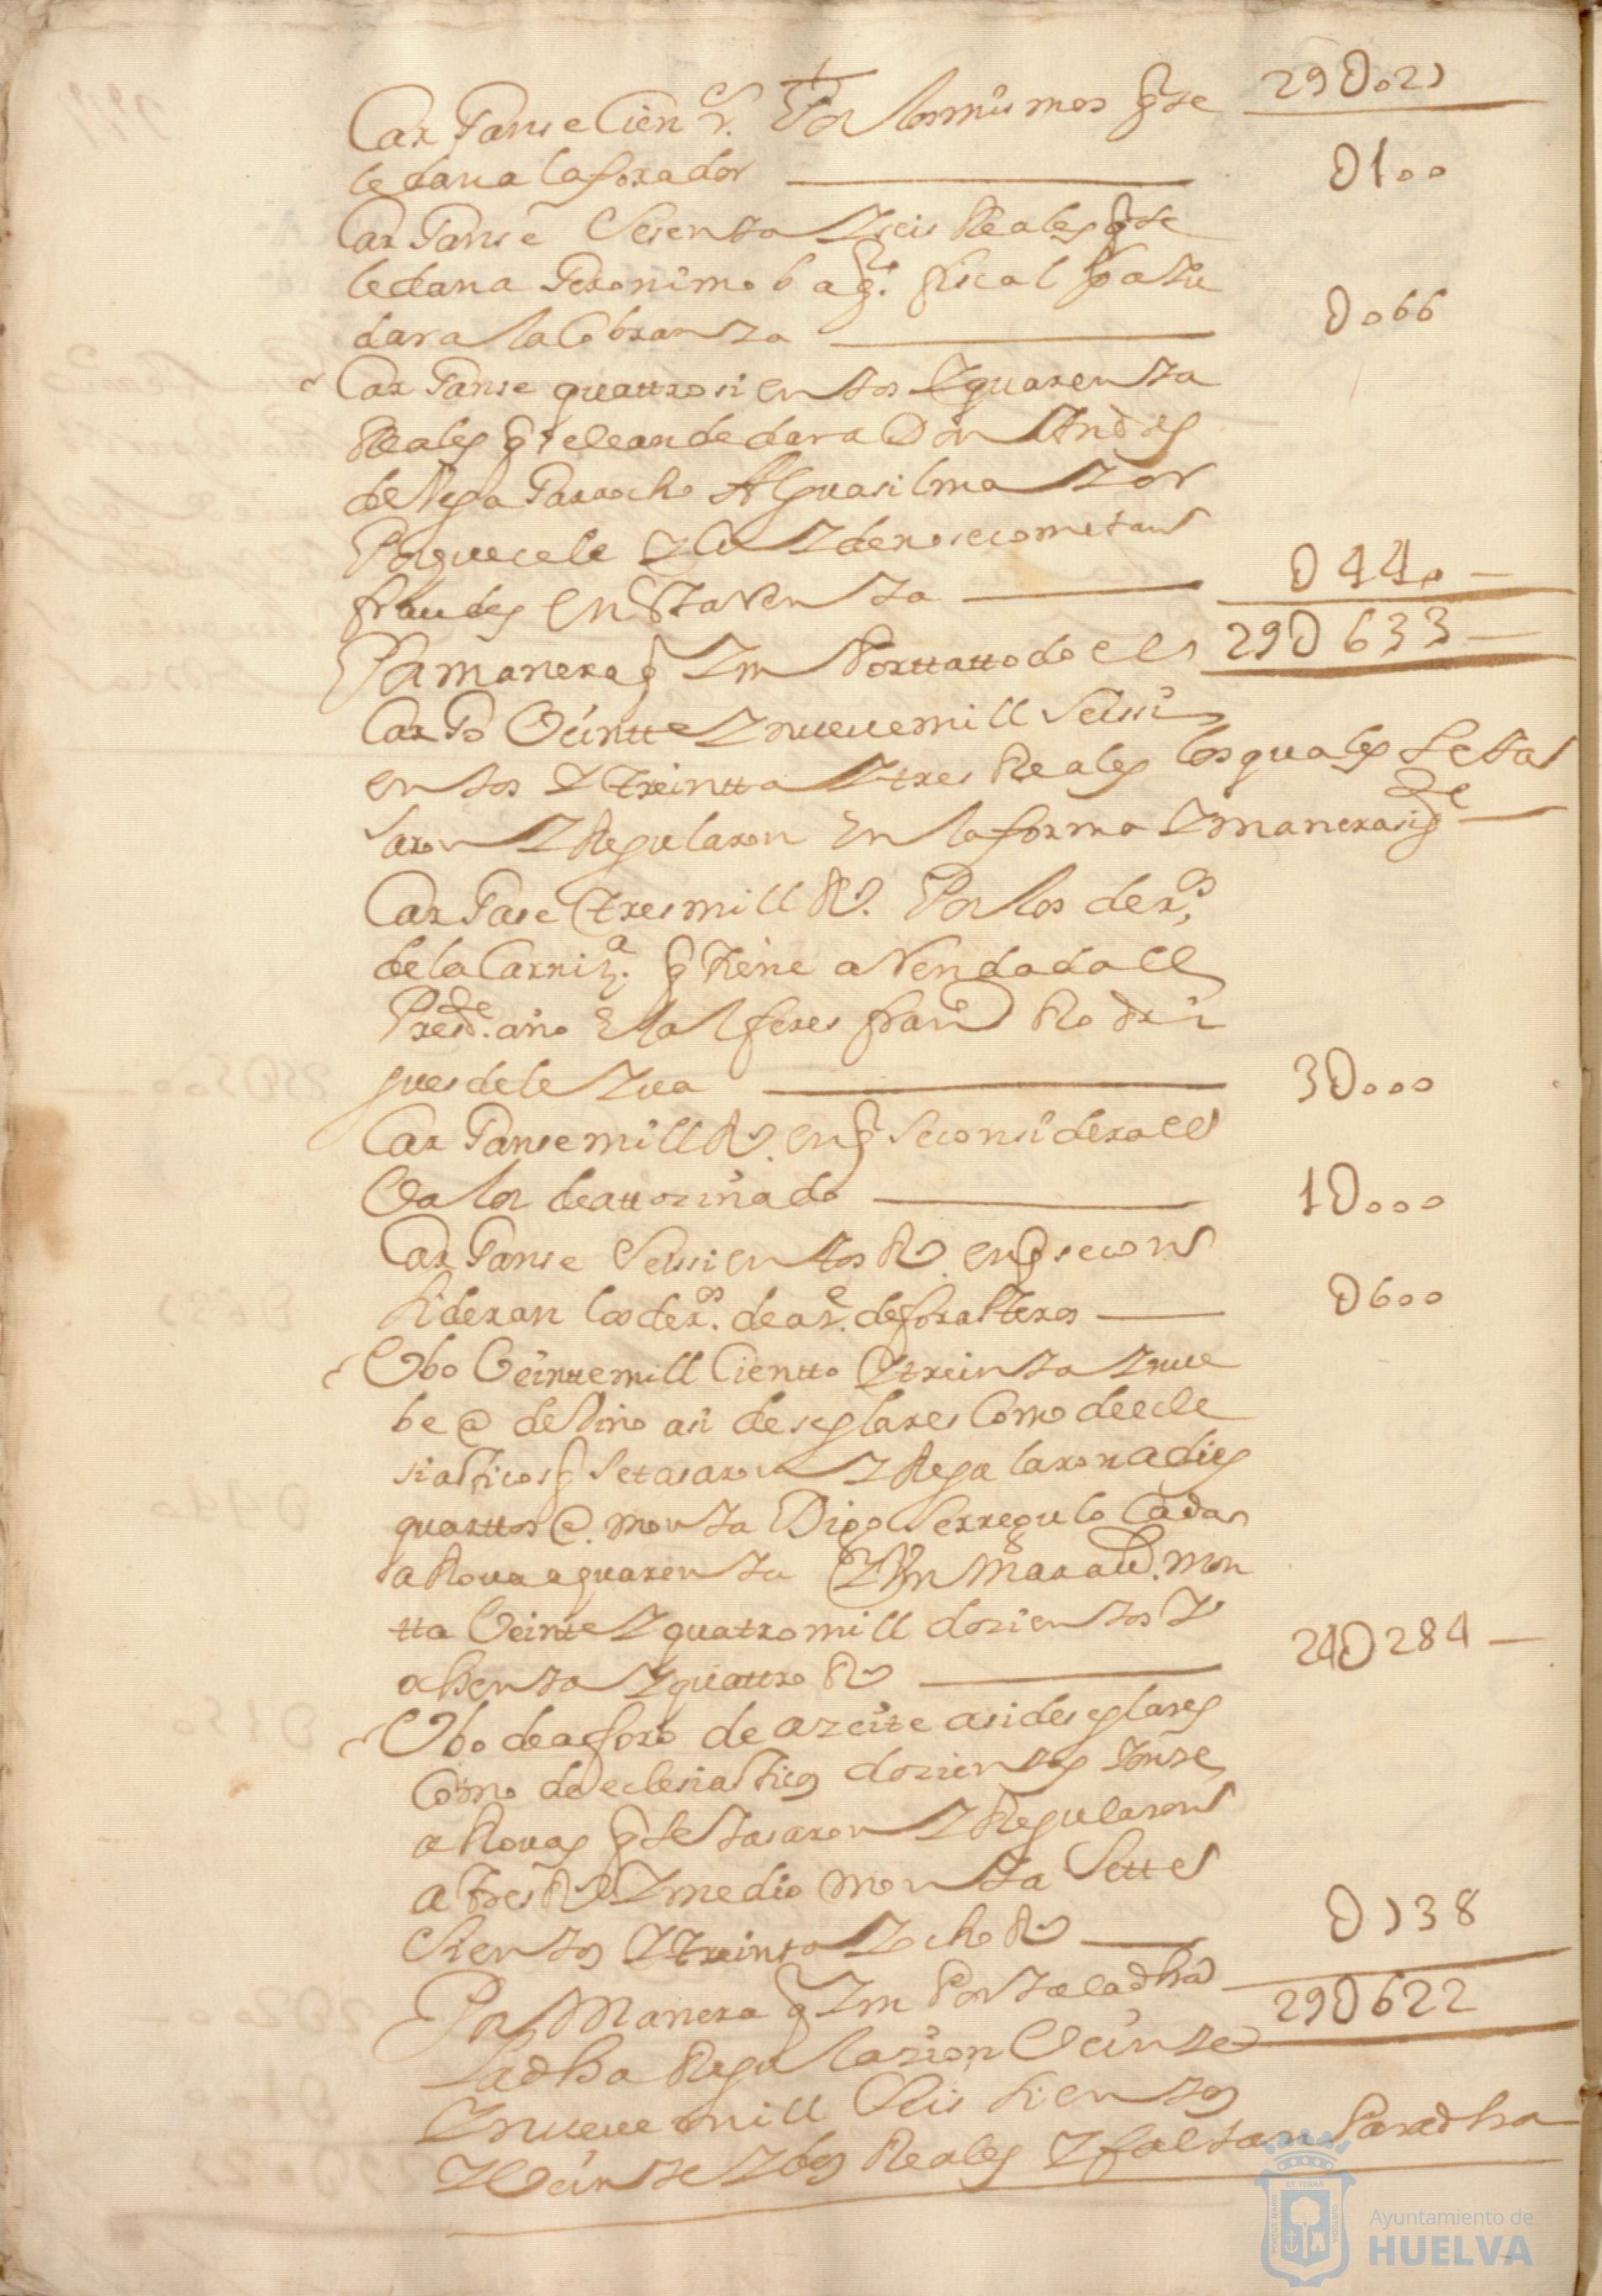 29U021
Carganse Cien Rs. Por los mismos q se
le dan a la forador ——— U100
Carganse Sesenta y seis Reales q se
le dan a Geronimo b ag. fiscal pa ayu
dar a la Cobransa ——— U066
Carganse quattrosientos y quarenta
Reales q se le an de dar a Don Andres
de Vega Garrocho Alguasil mayor
Porque cele y Cuyde no se cometan
fraudes en esta Renta ——— U440
29U633
Pa manera q ym Porta tto do el
Cargo Veintte y nueve mill Seissi
entos y treintta y tres Reales los quales se ta
saron y Regularon en la forma y manera sigte
Cargase tres mill Rs. Por los dexos
de la Carniza. q tiene aRendada el
Presde. año el alferes franco Rodri
gues de leyua ——— 3U000
Carganse mill Rs. en q se considera el
Valor de attozinado ——— 1U000
Carganse Seissientos Rs en q se con
sideran los dexos. de aze. de forasteros ——— U600
Vbo Veinttemill Cientto y treinta y nue
be @ de Vino asi de seglares Como de ecle
siasticos q se tasaron y Regularon a dies
quarttos @. monta Digo se rregulo Cada
aRoua a quarenta y Vn Maraud. mon
tta Veinte y quatro mill dozientos y
ochenta y quattro Rs ——— 24U284
Vbo de aforo de azeite asi de seglares
Como de eclesiasticos dozientos y onse
aRouas q se tasaron y Regularon
a tres Rs y medio monta Sette
Sientos y treinta y ocho Rs ——— U738
Pr Manera q ym Porta la dha 29U622
la dha Regulazion Veinte
y nueve mill Seis sientos
y Veinte y dos Reales y faltan Para dha
Ayuntamiento de
HUELVA